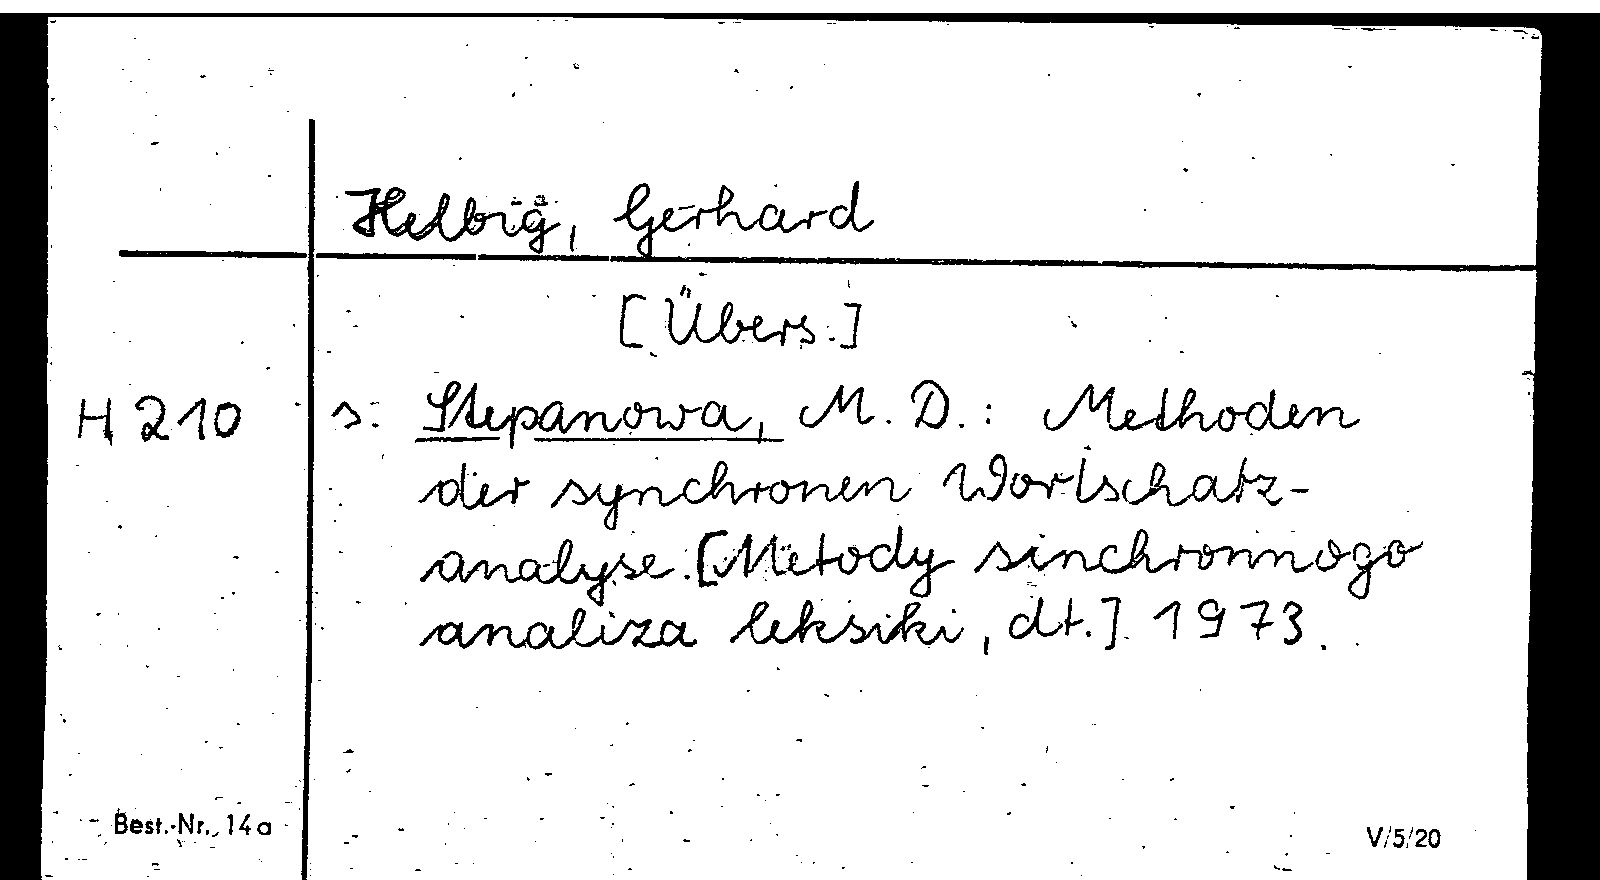 Helbig, Gerhard
[Übers.]
H 210 s. Stepanowa, M. D.: Methoden
der synchronen Wortschatz-
analyse. [Metody sinchronnogo
analiza leksiki, dt.] 1973.
Best.-Nr. 14a V/5/20